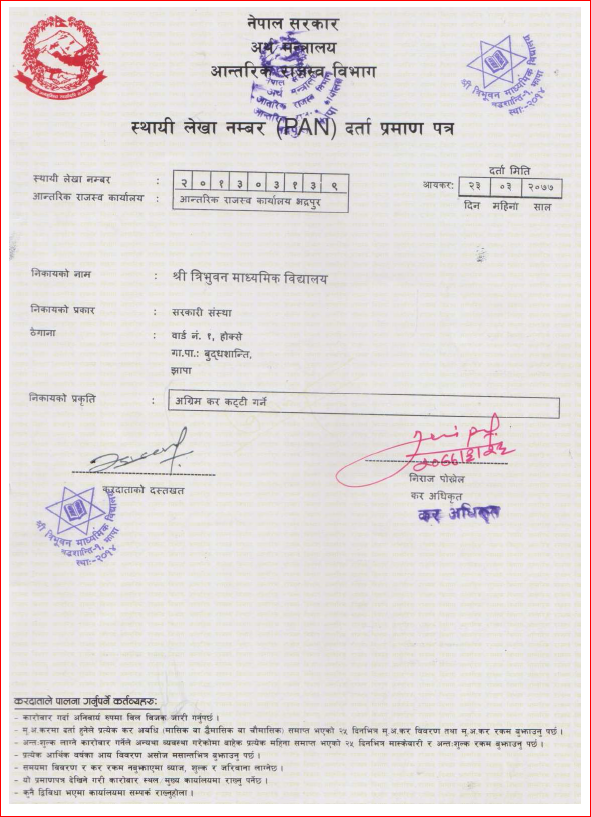 नेपाल सरकार
अर्थ मन्त्रालय
आन्तरिक राजस्व विभाग
श्री त्रिभुवन माध्यमिक विद्यालय
स्था:-२०१४
स्थायी लेखा नम्बर (PAN) दर्ता प्रमाण पत्र
दर्ता मिति
स्थायी लेखा नम्बर : २ ० १ ३ ० ३ १ ३ ९
आयकर: २३ ०३ २०७७
आन्तरिक राजस्व कार्यालय : आन्तरिक राजस्व कार्यालय भद्रपुर
दिन महिना साल
निकायको नाम : श्री त्रिभुवन माध्यमिक विद्यालय
निकायको प्रकार : सरकारी संस्था
ठेगाना : वार्ड नं. १, होक्से
गा.पा.: बुद्धशान्ति,
झापा
निकायको प्रकृति : अग्रिम कर कट्टी गर्ने
करदाताको दस्तखत
निराज पोखेल
कर अधिकृत
कर अधिकृत
श्री त्रिभुवन माध्यमिक विद्यालय
स्था:-२०१४
करदाताले पालना गर्नुपर्ने कर्तव्यहरु:
- कारोबार गर्दा अनिवार्य रुपमा बिल बिजक जारी गर्नुपर्छ ।
- मू.अ.करमा दर्ता हुनेले प्रत्येक कर अवधि (मासिक वा द्वैमासिक वा चौमासिक) समाप्त भएको २५ दिनभित्र मू.अ.कर विवरण तथा मू.अ.कर रकम बुझाउनु पर्छ ।
- अन्त:शुल्क लाग्ने कारोबार गर्नेले अन्यथा व्यवस्था गरेकोमा बाहेक प्रत्येक महिना समाप्त भएको २५ दिनभित्र मास्केबारी र अन्त:शुल्क रकम बुझाउनु पर्छ ।
- प्रत्येक आर्थिक वर्षका आय विवरण असोज मसान्तभित्र बुझाउनु पर्छ ।
- समयमा विवरण र कर रकम नबुझाएमा ब्याज, शुल्क र जरिवाना लाग्नेछ ।
- यो प्रमाणपत्र देखिने गरी कारोबार स्थल/मुख्य कार्यालयमा राख्नु पर्नेछ ।
- कुनै द्विविधा भएमा कार्यालयमा सम्पर्क राख्नुहोला ।